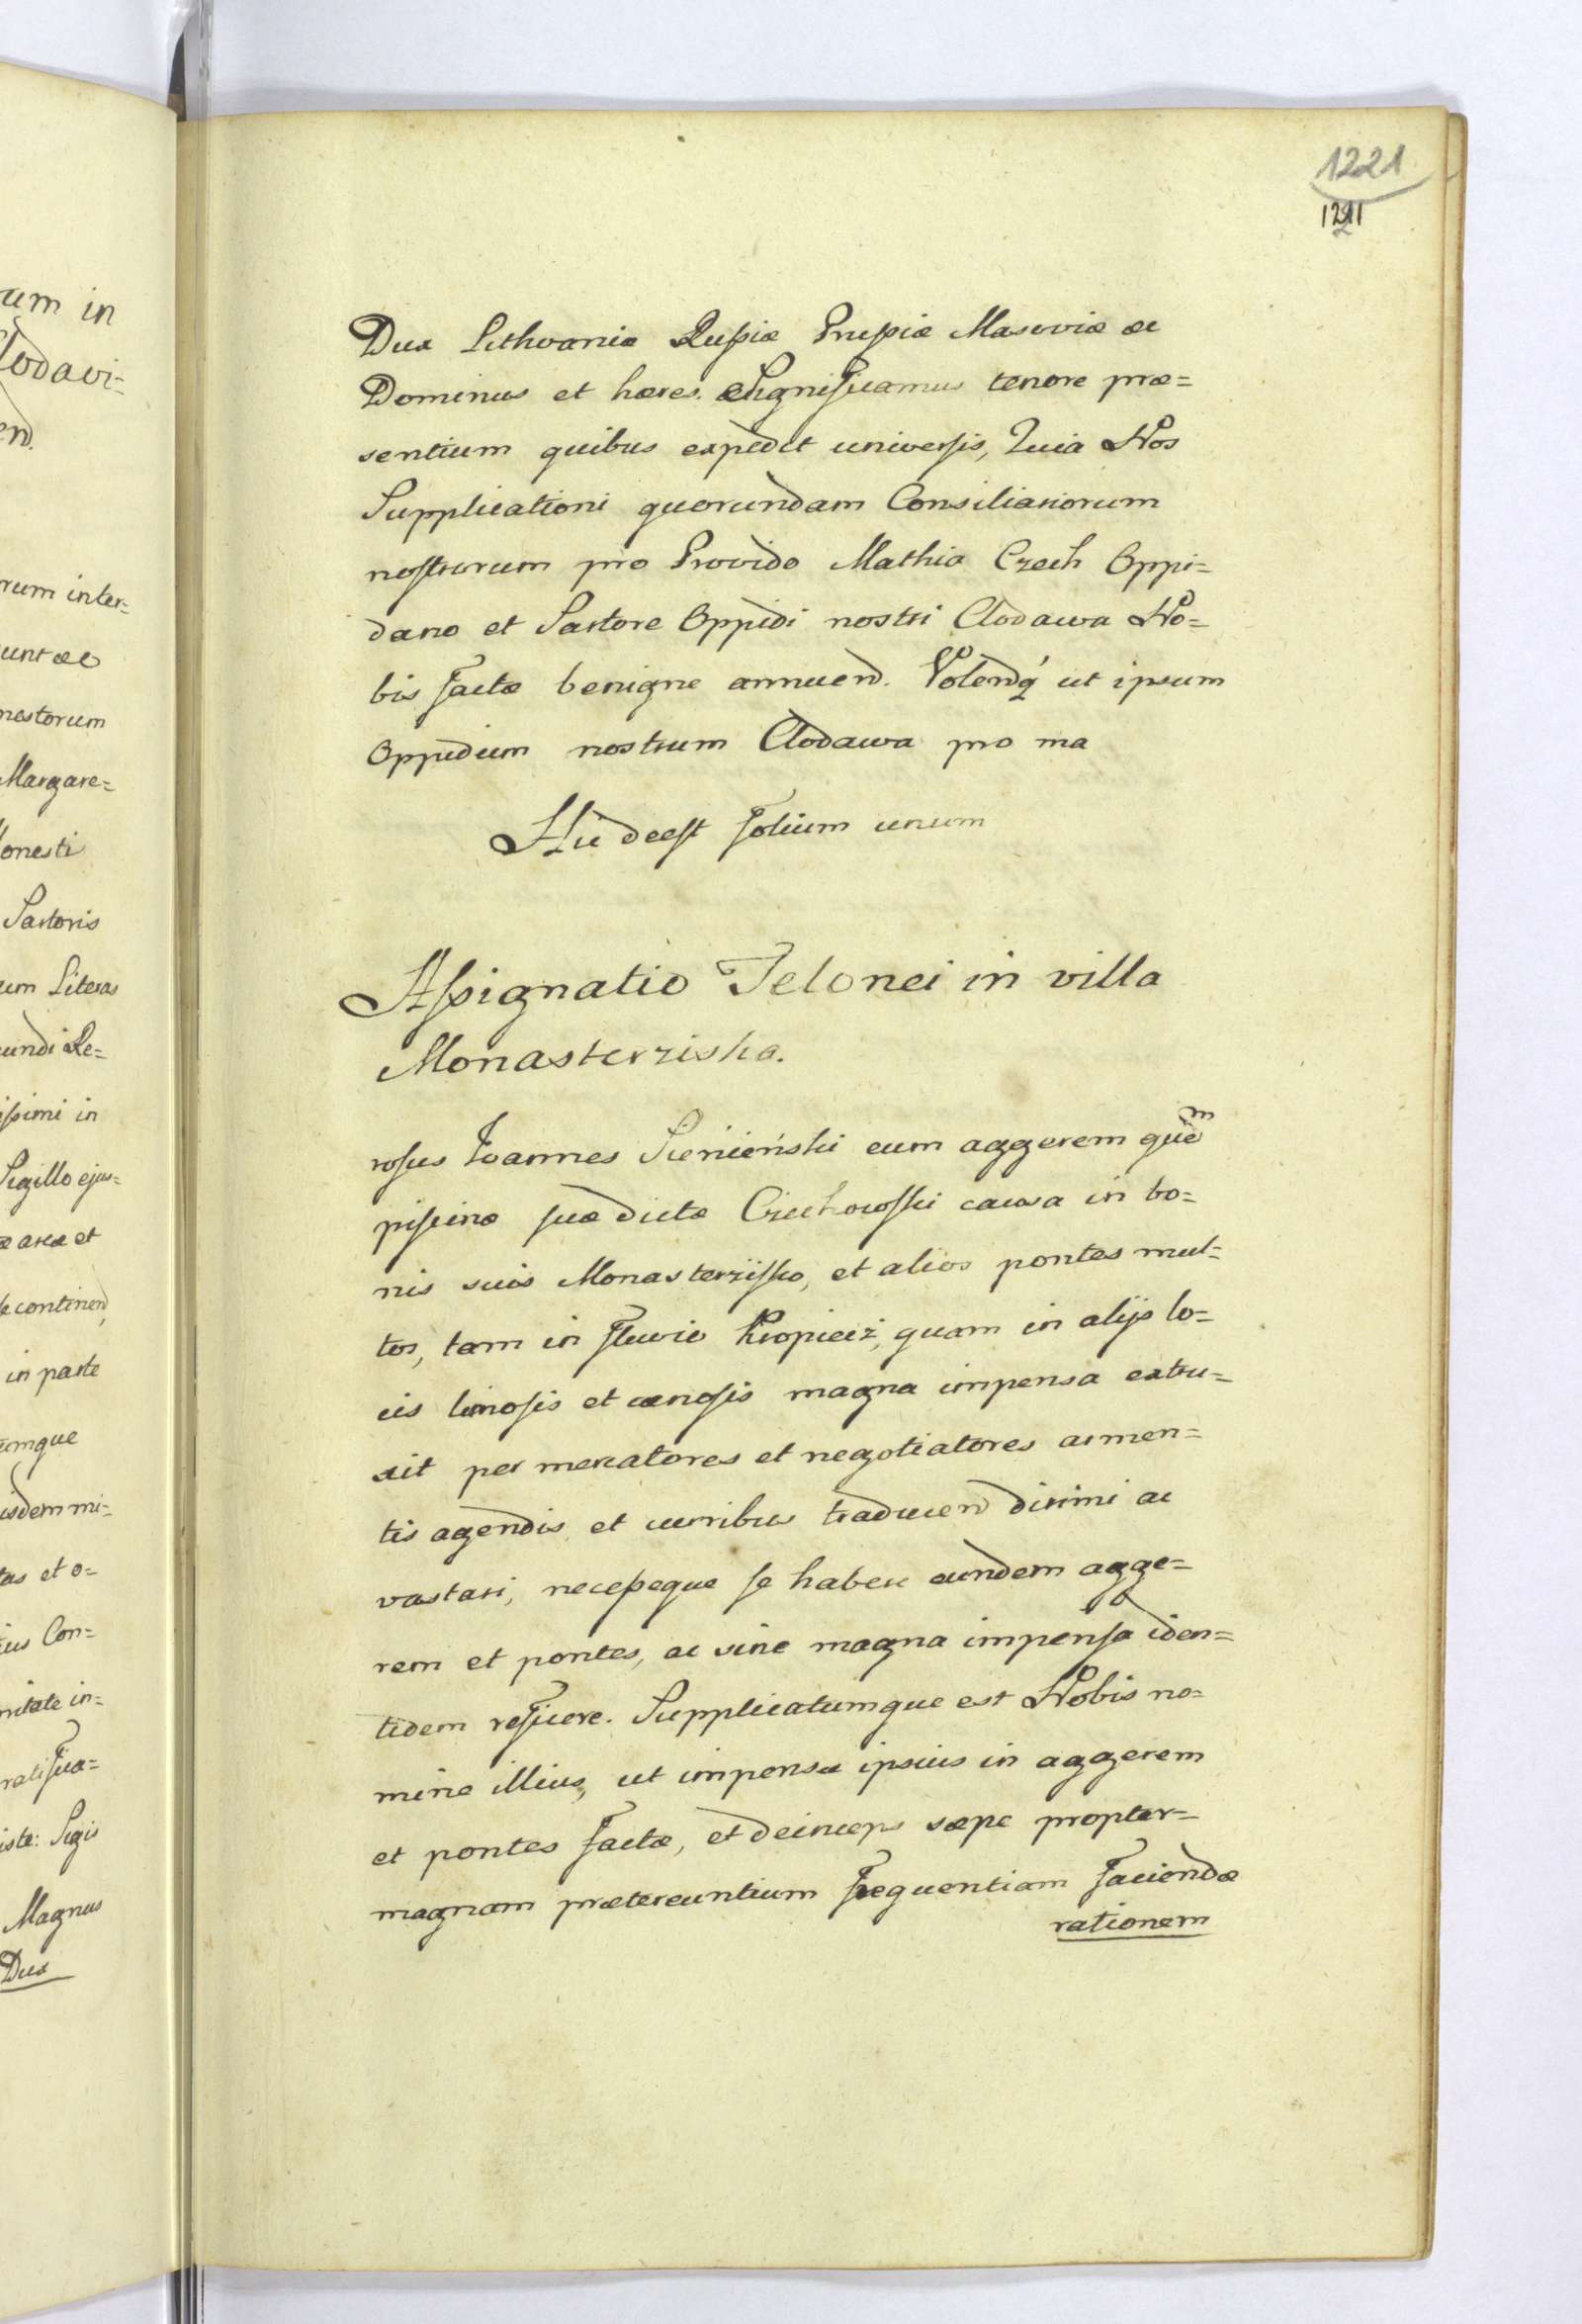 um in
lodavi=
en.
rum inter=
unt ac
nostorum
Margare=
onesti
Sartoris
um Literas
undi Re=
issimi in
Sigillo ejus=
æ area et
continen
in parte
umque
isdem mi=
tas et o=
ius Con=
nitate in=
ratifica=
iste: Sigis
Magnus
Dux
1221
Dux Lithvaniæ Russiæ Prussiæ Masoviæ &c
Dominus et hæres. Significamus tenore præ=
sentium quibus expedit universis, Quia Nos
Supplicationi quorundam Consiliariorum
nostrorum pro Provido Mathia Czech Oppi=
dano et Sartore Oppidi nostri Clodawa No=
bis factæ benigne annuend. Volendq́ ut ipsum
Oppidum nostrum Clodawa pro ma
Hic deest folium unum
Assignatio Telonei in villa
Monasterziska.
rosus Ioannes Sienieński eum aggerem quem
piscinæ suæ dictæ Czechowski causa in bo=
nis suis Monasterzisko, et alios pontes mul=
tos, tam in fluvio Kropiecz, quam in alijs lo=
cis limosis et cænosis magna impensa extru=
xit per mercatores et negotiatores armen=
tis agendis et curribus traducend dirimi ac
vastari, necesseque se habere eundem agge=
rem et pontes, ac sine magna impensa iden=
tidem reficere. Supplicatumque est Nobis no=
mine illius, ut impensæ ipsius in aggerem
et pontes factæ, et deinceps sæpe propter=
magnam prætereuntium frequentiam faciendæ
rationem